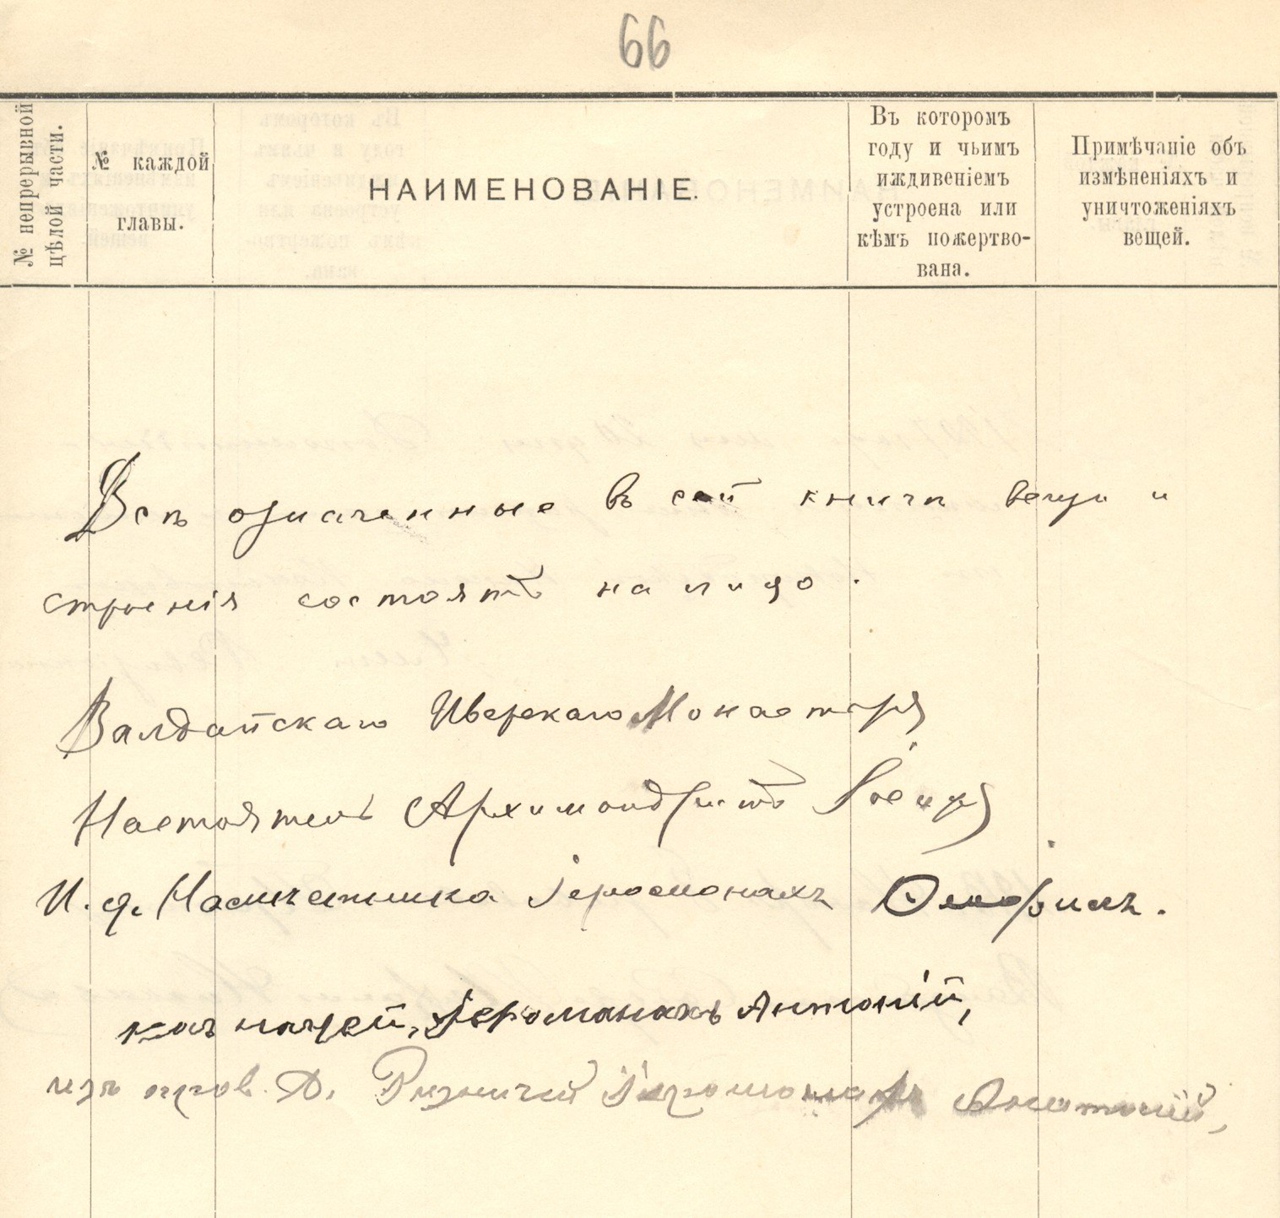 66
№ непрерывной
цѣлой части.
№ каждой
главы.
НАИМЕНОВАНІЕ.
Въ которомъ
году и чьимъ
иждивеніемъ
устроена или
кѣмъ пожертво-
вана.
Примѣчаніе объ
измѣненіяхъ и
уничтоженіяхъ
вещей.
Всѣ означенные въ сей книгѣ вещи и
строенія состоятъ на лицо.
Валдайскаго Иверскаго Монастыря
Настоятель Архимандритъ Іосифъ
И. д. Намѣстника Іеромонахъ
казначей, Іеромонахъ Антоній,
Ризничій Іеромонахъ Анатолій,